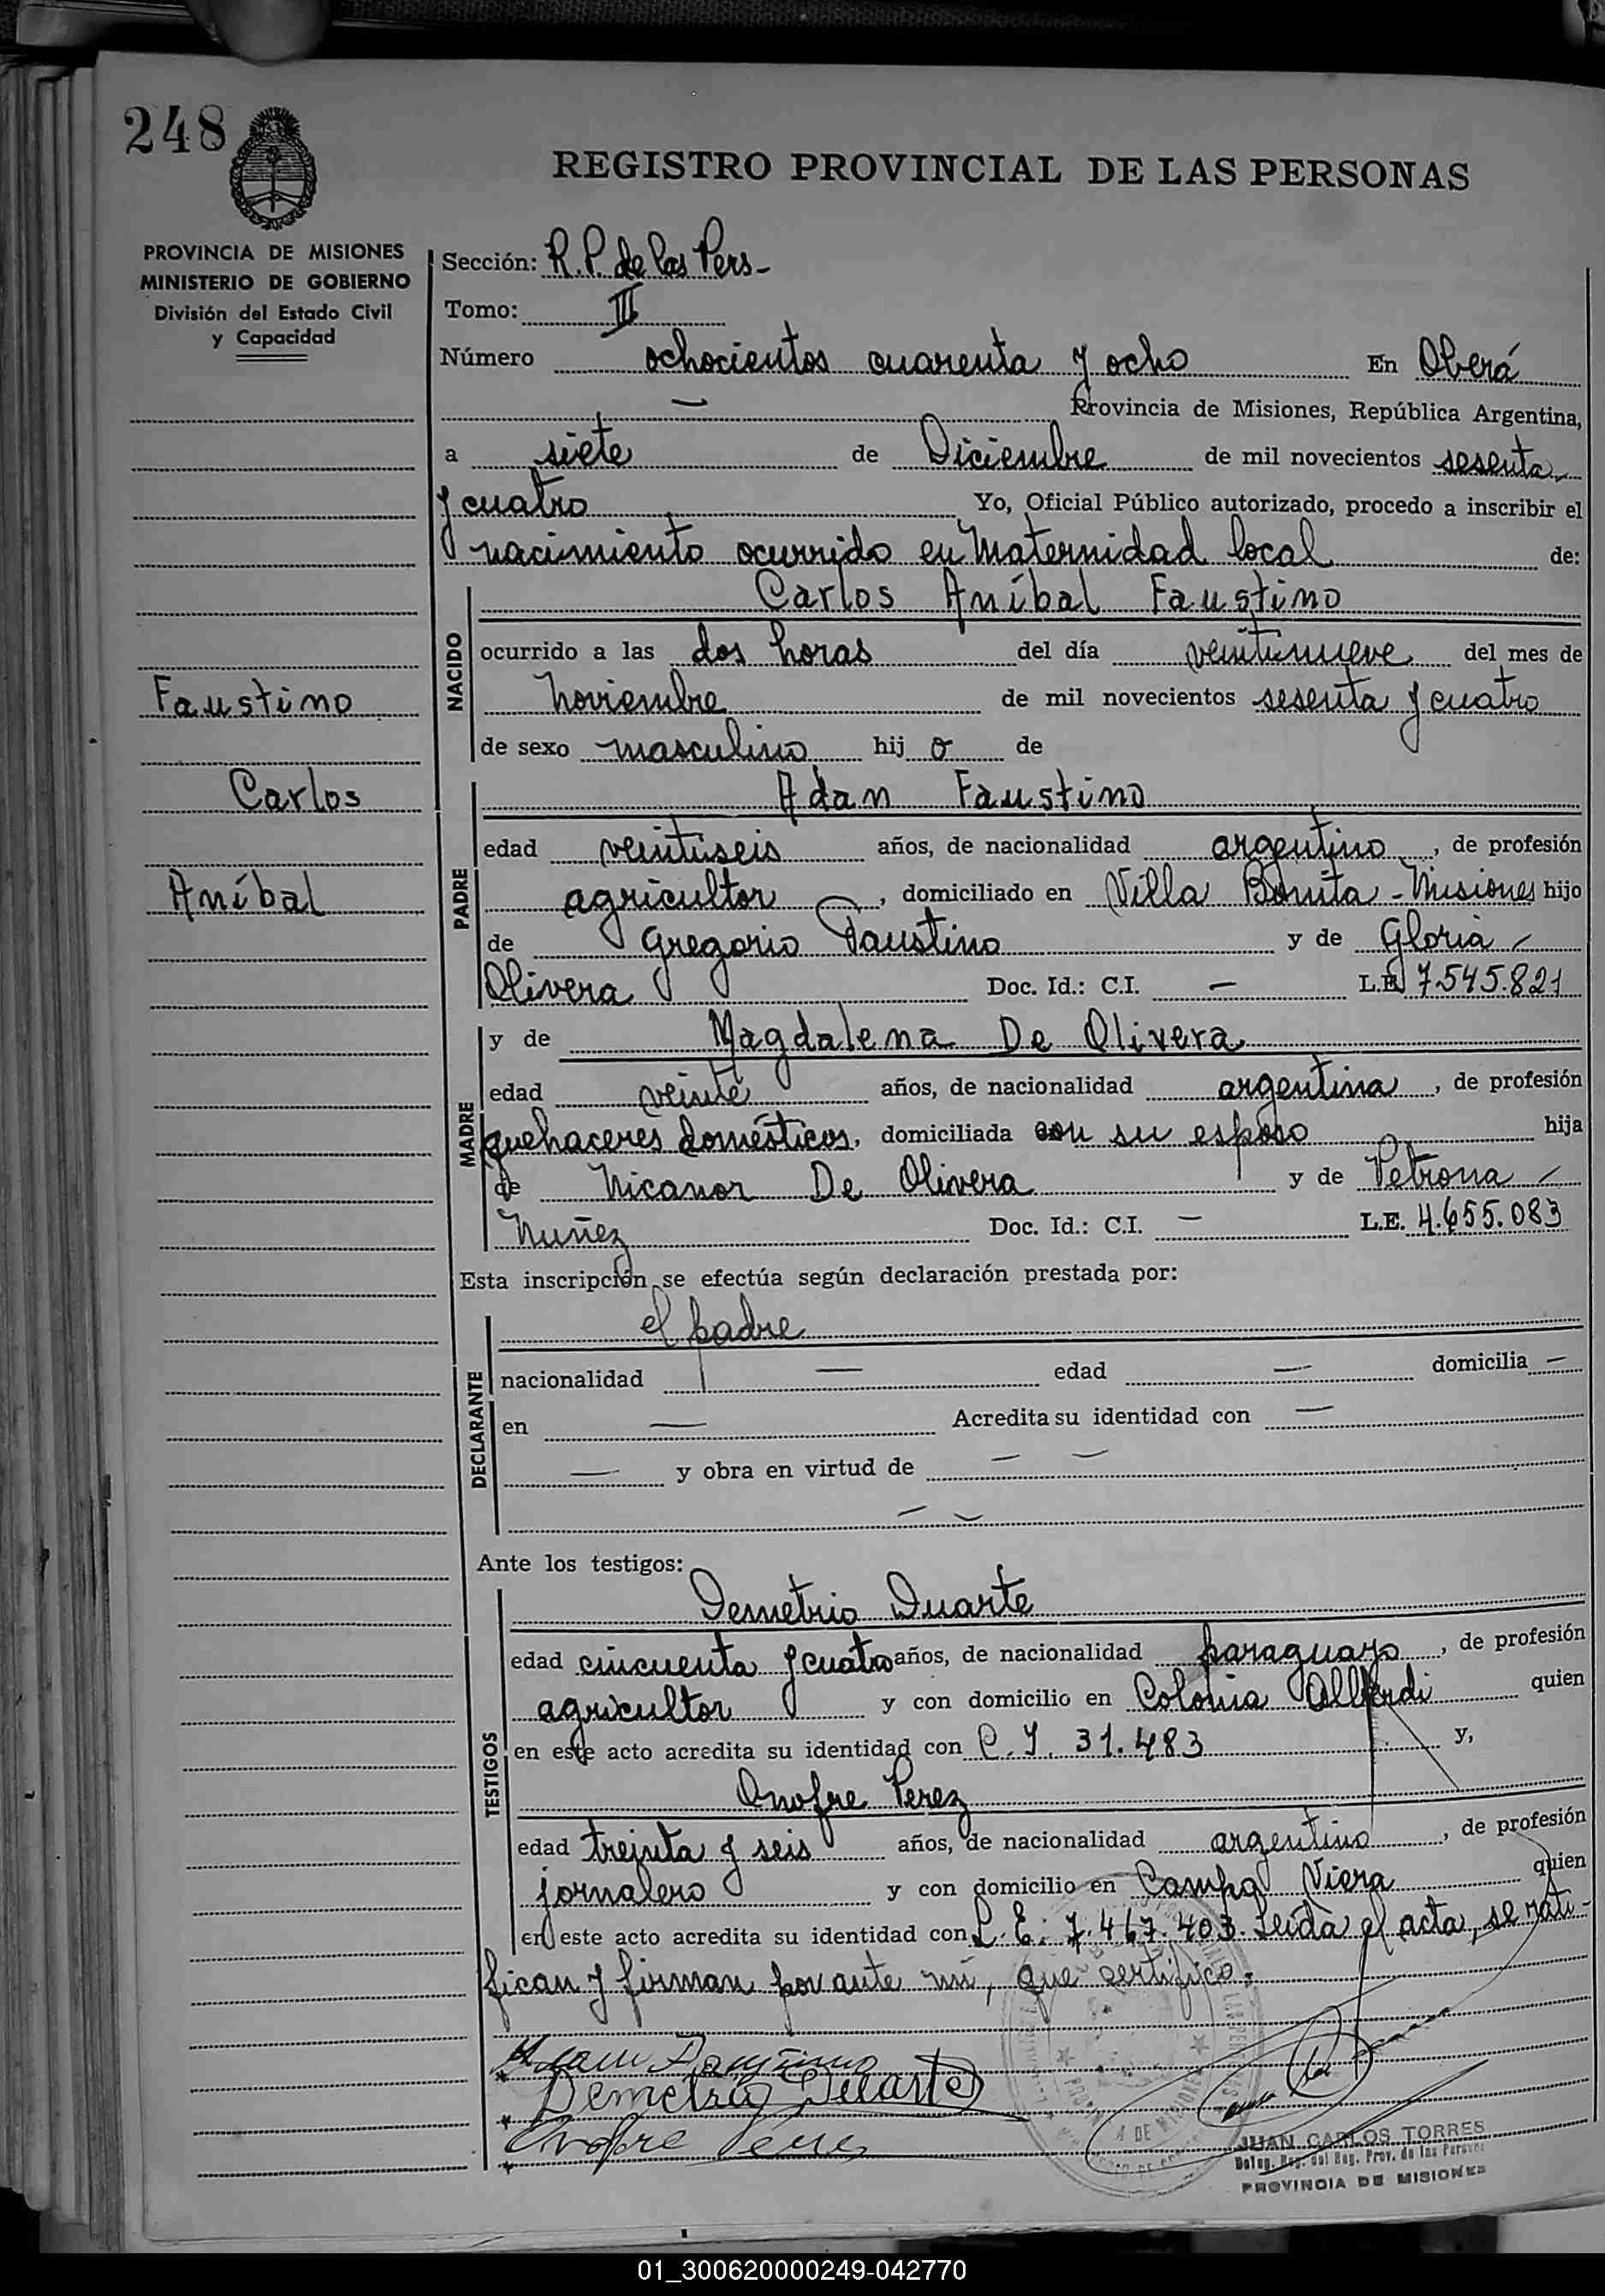 248
REGISTRO PROVINCIAL DE LAS PERSONAS
PROVINCIA DE MISIONES
MINISTERIO DE GOBIERNO
División del Estado Civil
y Capacidad
Sección: R.P. de las Pers-
Tomo: III
Número ochocientos cuarenta y ocho En Oberá
— Provincia de Misiones, República Argentina,
a siete de Diciembre de mil novecientos sesenta
y cuatro Yo, Oficial Público autorizado, procedo a inscribir el
nacimiento ocurrido en Maternidad local de:
NACIDO
Carlos Aníbal Faustino
ocurrido a las dos horas del día veintinueve del mes de
Noviembre de mil novecientos sesenta y cuatro
de sexo masculino hij o de
Faustino
Carlos
Aníbal
PADRE
Adan Faustino
edad veintiseis años, de nacionalidad argentino, de profesión
agricultor, domiciliado en Villa Bonita - Misiones hijo
de Gregorio Faustino y de Gloria -
Olivera Doc. Id.: C.I. — L.E. 7.545.821
MADRE
y de Magdalena De Olivera
edad veinte años, de nacionalidad argentina, de profesión
quehaceres domésticos, domiciliada con su esposo hija
de Nicanor De Olivera y de Petrona -
Nuñez Doc. Id.: C.I. — L.E. 4.655.083
Esta inscripción se efectúa según declaración prestada por:
DECLARANTE
el padre
nacionalidad — edad — domicilia —
en — Acredita su identidad con —
— y obra en virtud de — —
— —
Ante los testigos:
TESTIGOS
Demetrio Duarte
edad cincuenta y cuatro años, de nacionalidad paraguayo, de profesión
agricultor y con domicilio en Colonia Alberdi quien
en este acto acredita su identidad con C.I. 31.483 y,
Onofre Perez
edad treinta y seis años, de nacionalidad argentino, de profesión
jornalero y con domicilio en Campo Viera quien
en este acto acredita su identidad con L.E. 7.467.403. Leída el acta, se rati-
fican y firman por ante mí, que certifico.
Adan Faustino
Demetrio Duarte
Onofre Perez
JUAN CARLOS TORRES
Deleg. Reg. del Reg. Prov. de las Personas
PROVINCIA DE MISIONES
01_300620000249-042770